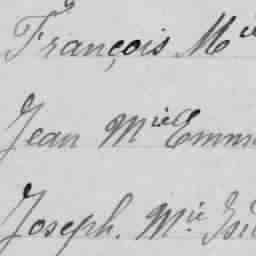 François Mie
Jean Mie Emm
Joseph. Mie Isi